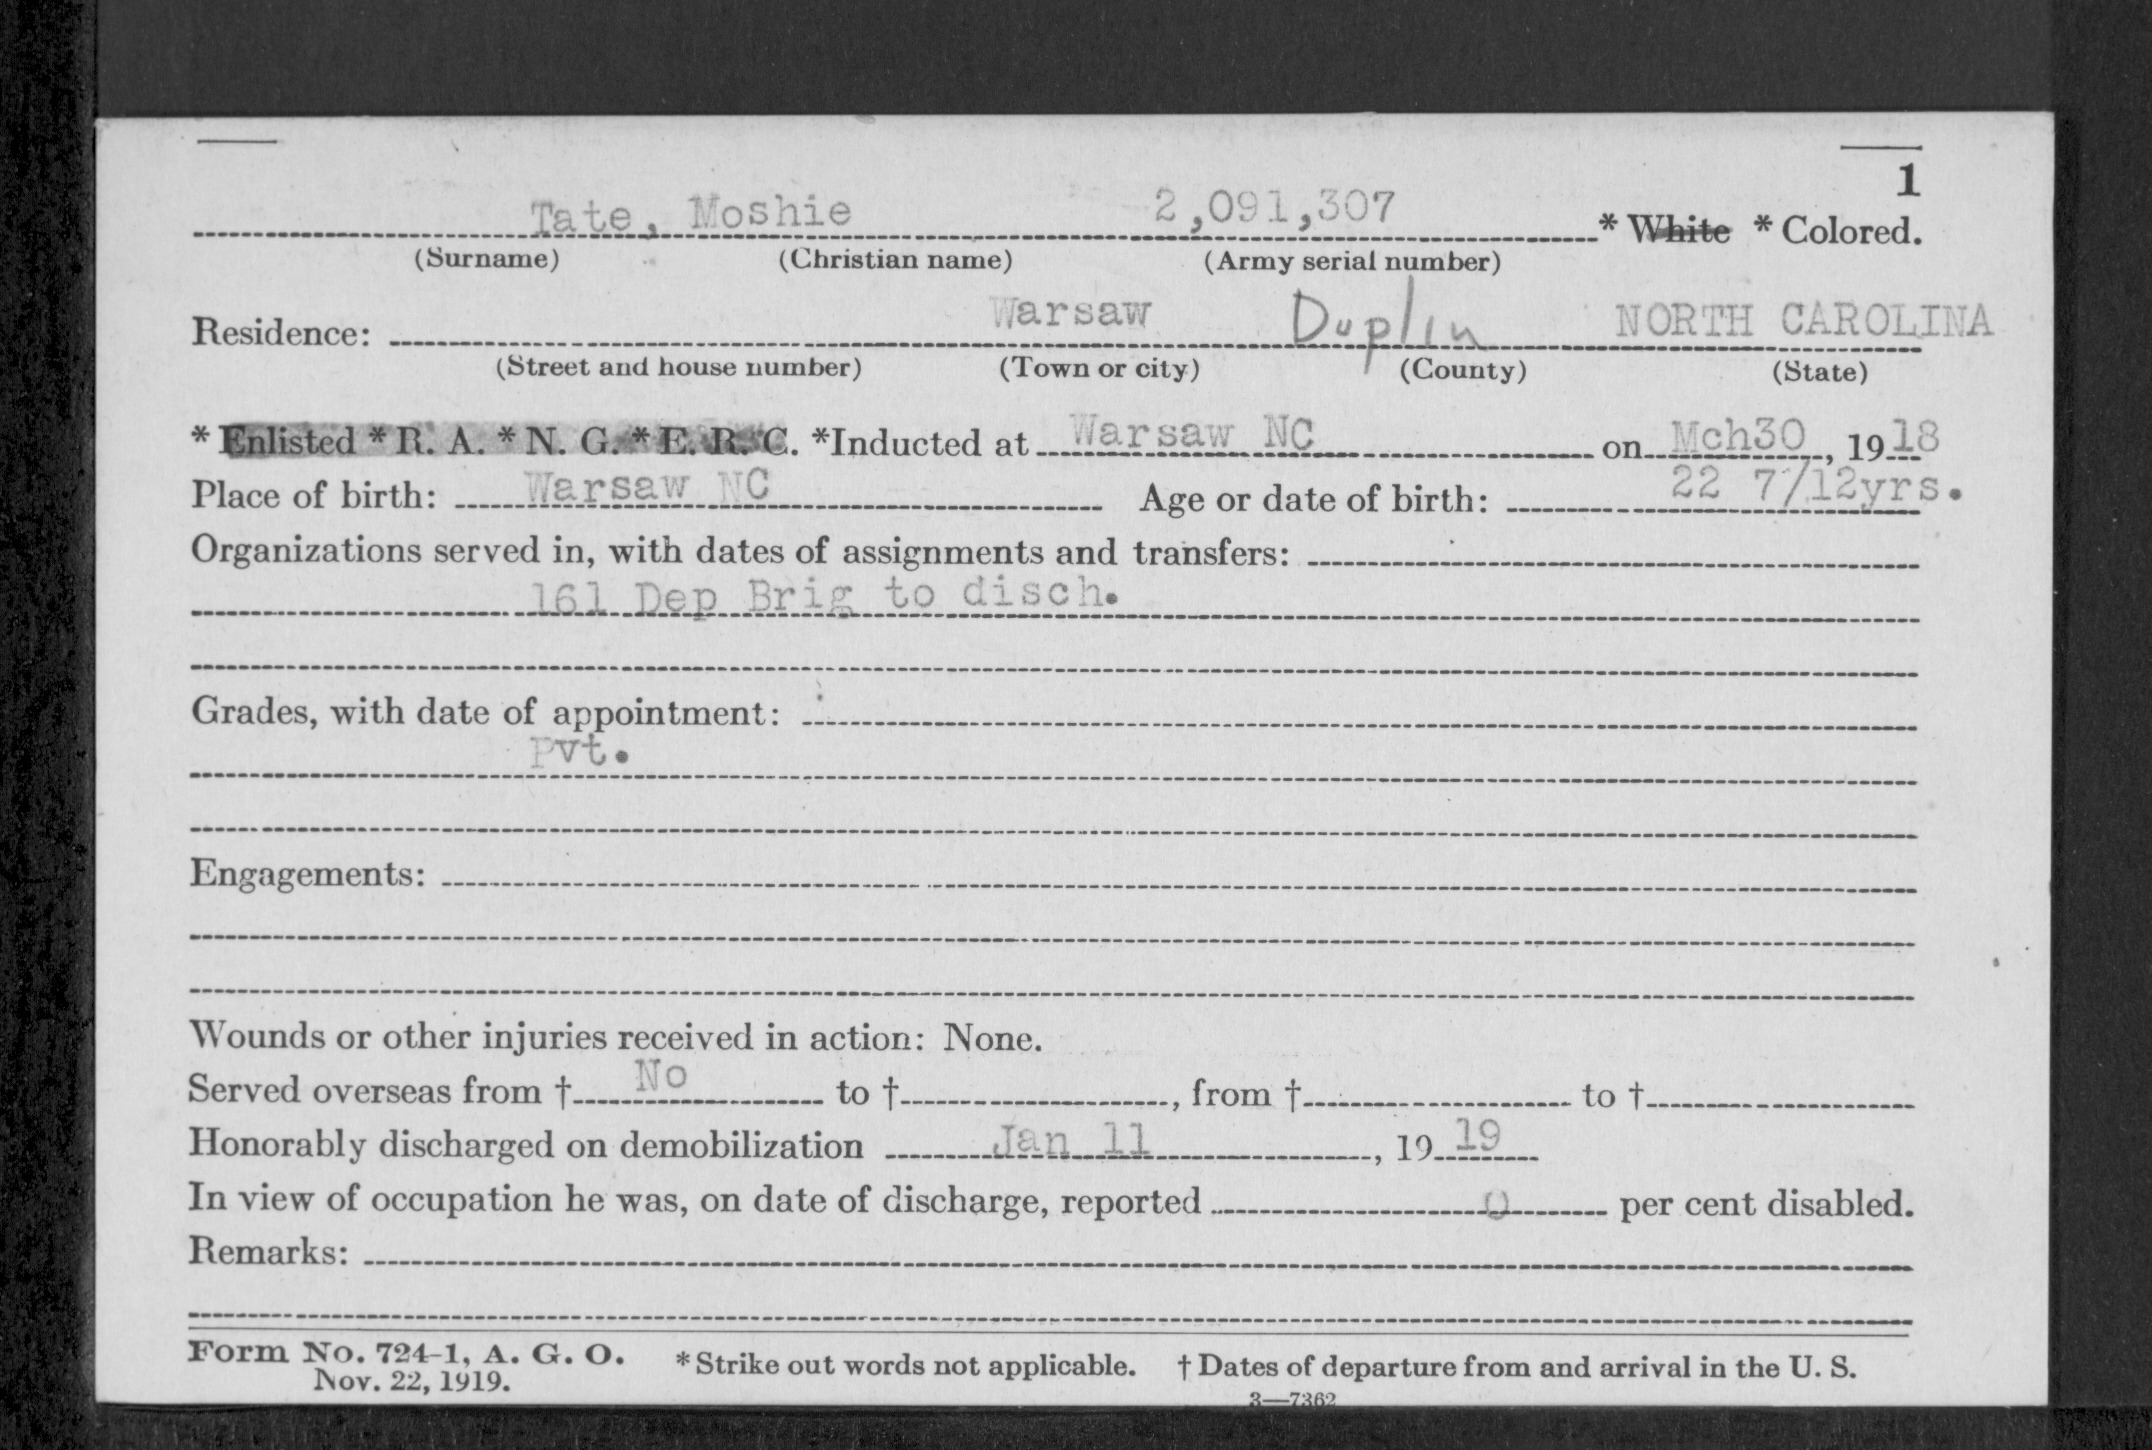 1
Tate, Moshie 2,091,307 * White * Colored.
(Surname) (Christian name) (Army serial number)
Residence: Warsaw Duplin NORTH CAROLINA
(Street and house number) (Town or city) (County) (State)
* Enlisted * R. A. * N. G. * E. R. C. *Inducted at Warsaw NC on Mch30, 1918
Place of birth: Warsaw NC Age or date of birth: 22 7/12yrs.
Organizations served in, with dates of assignments and transfers:
161 Dep Brig to disch.
Grades, with date of appointment:
Pvt.
Engagements:
Wounds or other injuries received in action: None.
Served overseas from † No to †, from † to †
Honorably discharged on demobilization Jan 11, 1919
In view of occupation he was, on date of discharge, reported 0 per cent disabled.
Remarks:
Form No. 724-1, A. G. O. * Strike out words not applicable. † Dates of departure from and arrival in the U. S.
Nov. 22, 1919.
3—7362